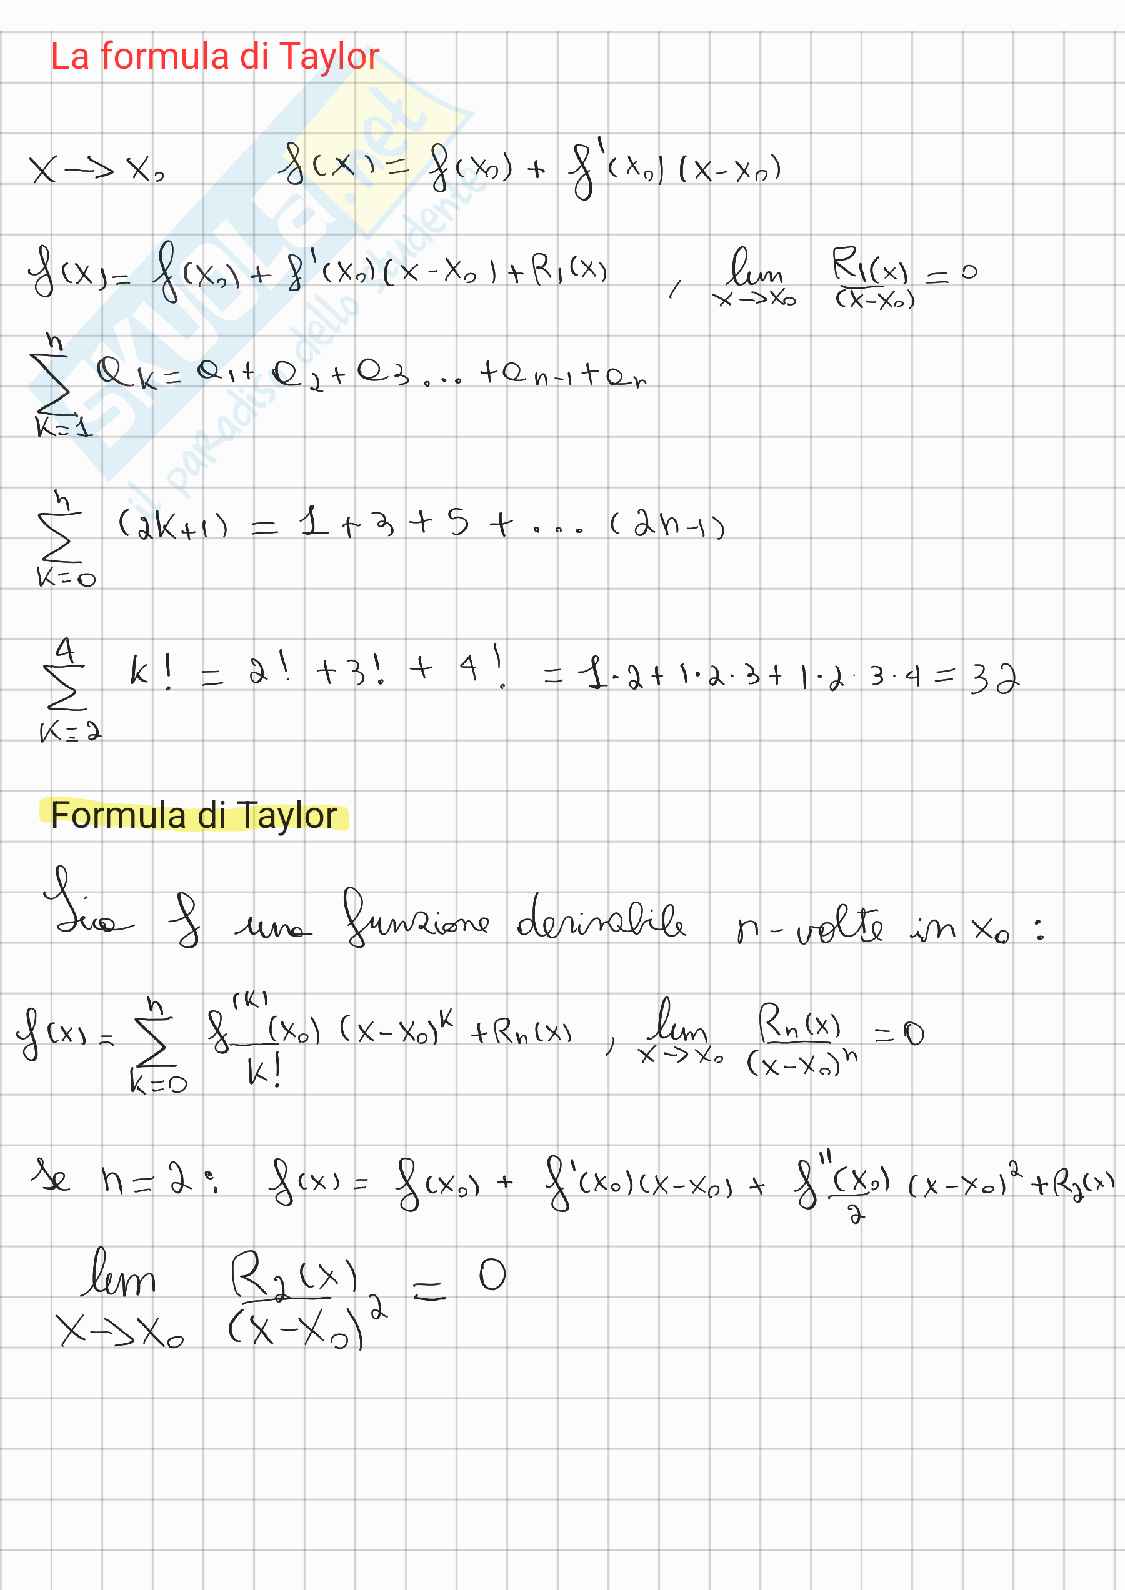 La formula di Taylor
x → x₀ f(x) = f(x₀) + f'(x₀)(x-x₀)
f(x) = f(x₀) + f'(x₀)(x-x₀) + R₁(x) , lim x→x₀ R₁(x)/(x-x₀) = 0
∑ k=1 n aₖ = a₁ + a₂ + a₃ ... + aₙ₋₁ + aₙ
∑ k=0 n (2k+1) = 1 + 3 + 5 + ... (2n-1)
∑ k=2 4 k! = 2! + 3! + 4! = 1·2 + 1·2·3 + 1·2·3·4 = 32
Formula di Taylor
Sia f una funzione derivabile n-volte in x₀ :
f(x) = ∑ k=0 n f⁽ᵏ⁾(x₀)/k! (x-x₀)ᵏ + Rₙ(x) , lim x→x₀ Rₙ(x)/(x-x₀)ⁿ = 0
se n=2: f(x) = f(x₀) + f'(x₀)(x-x₀) + f''(x₀)/2 (x-x₀)² + R₂(x)
lim x→x₀ R₂(x)/(x-x₀)² = 0
SKUOLA.net
il paradiso dello studente